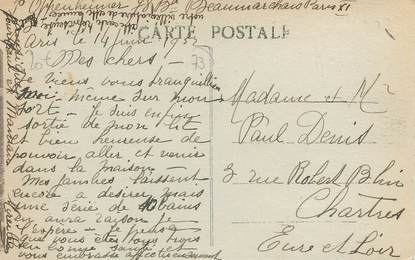 Oppenheimer Bd Beaumarchais Paris XI
CARTE POSTALE
Paris le 14 juin 1932
Mes chers -
Je viens vous tranquilliser
moi-même sur mon
sort - Je suis enfin
sortie de mon lit
et bien heureuse de
pouvoir aller et venir
dans la maison
Mes jambes laissent
encore a desirer mais
une série de 10 bains
en aura raison je
l'espère - Je pense
que vous êtes tous trois
en bonne santé et
vous embrasse affectueusement
73
Madame & Mr
Paul Denis
3 rue Robert Blin
Chartres
Eure et Loir